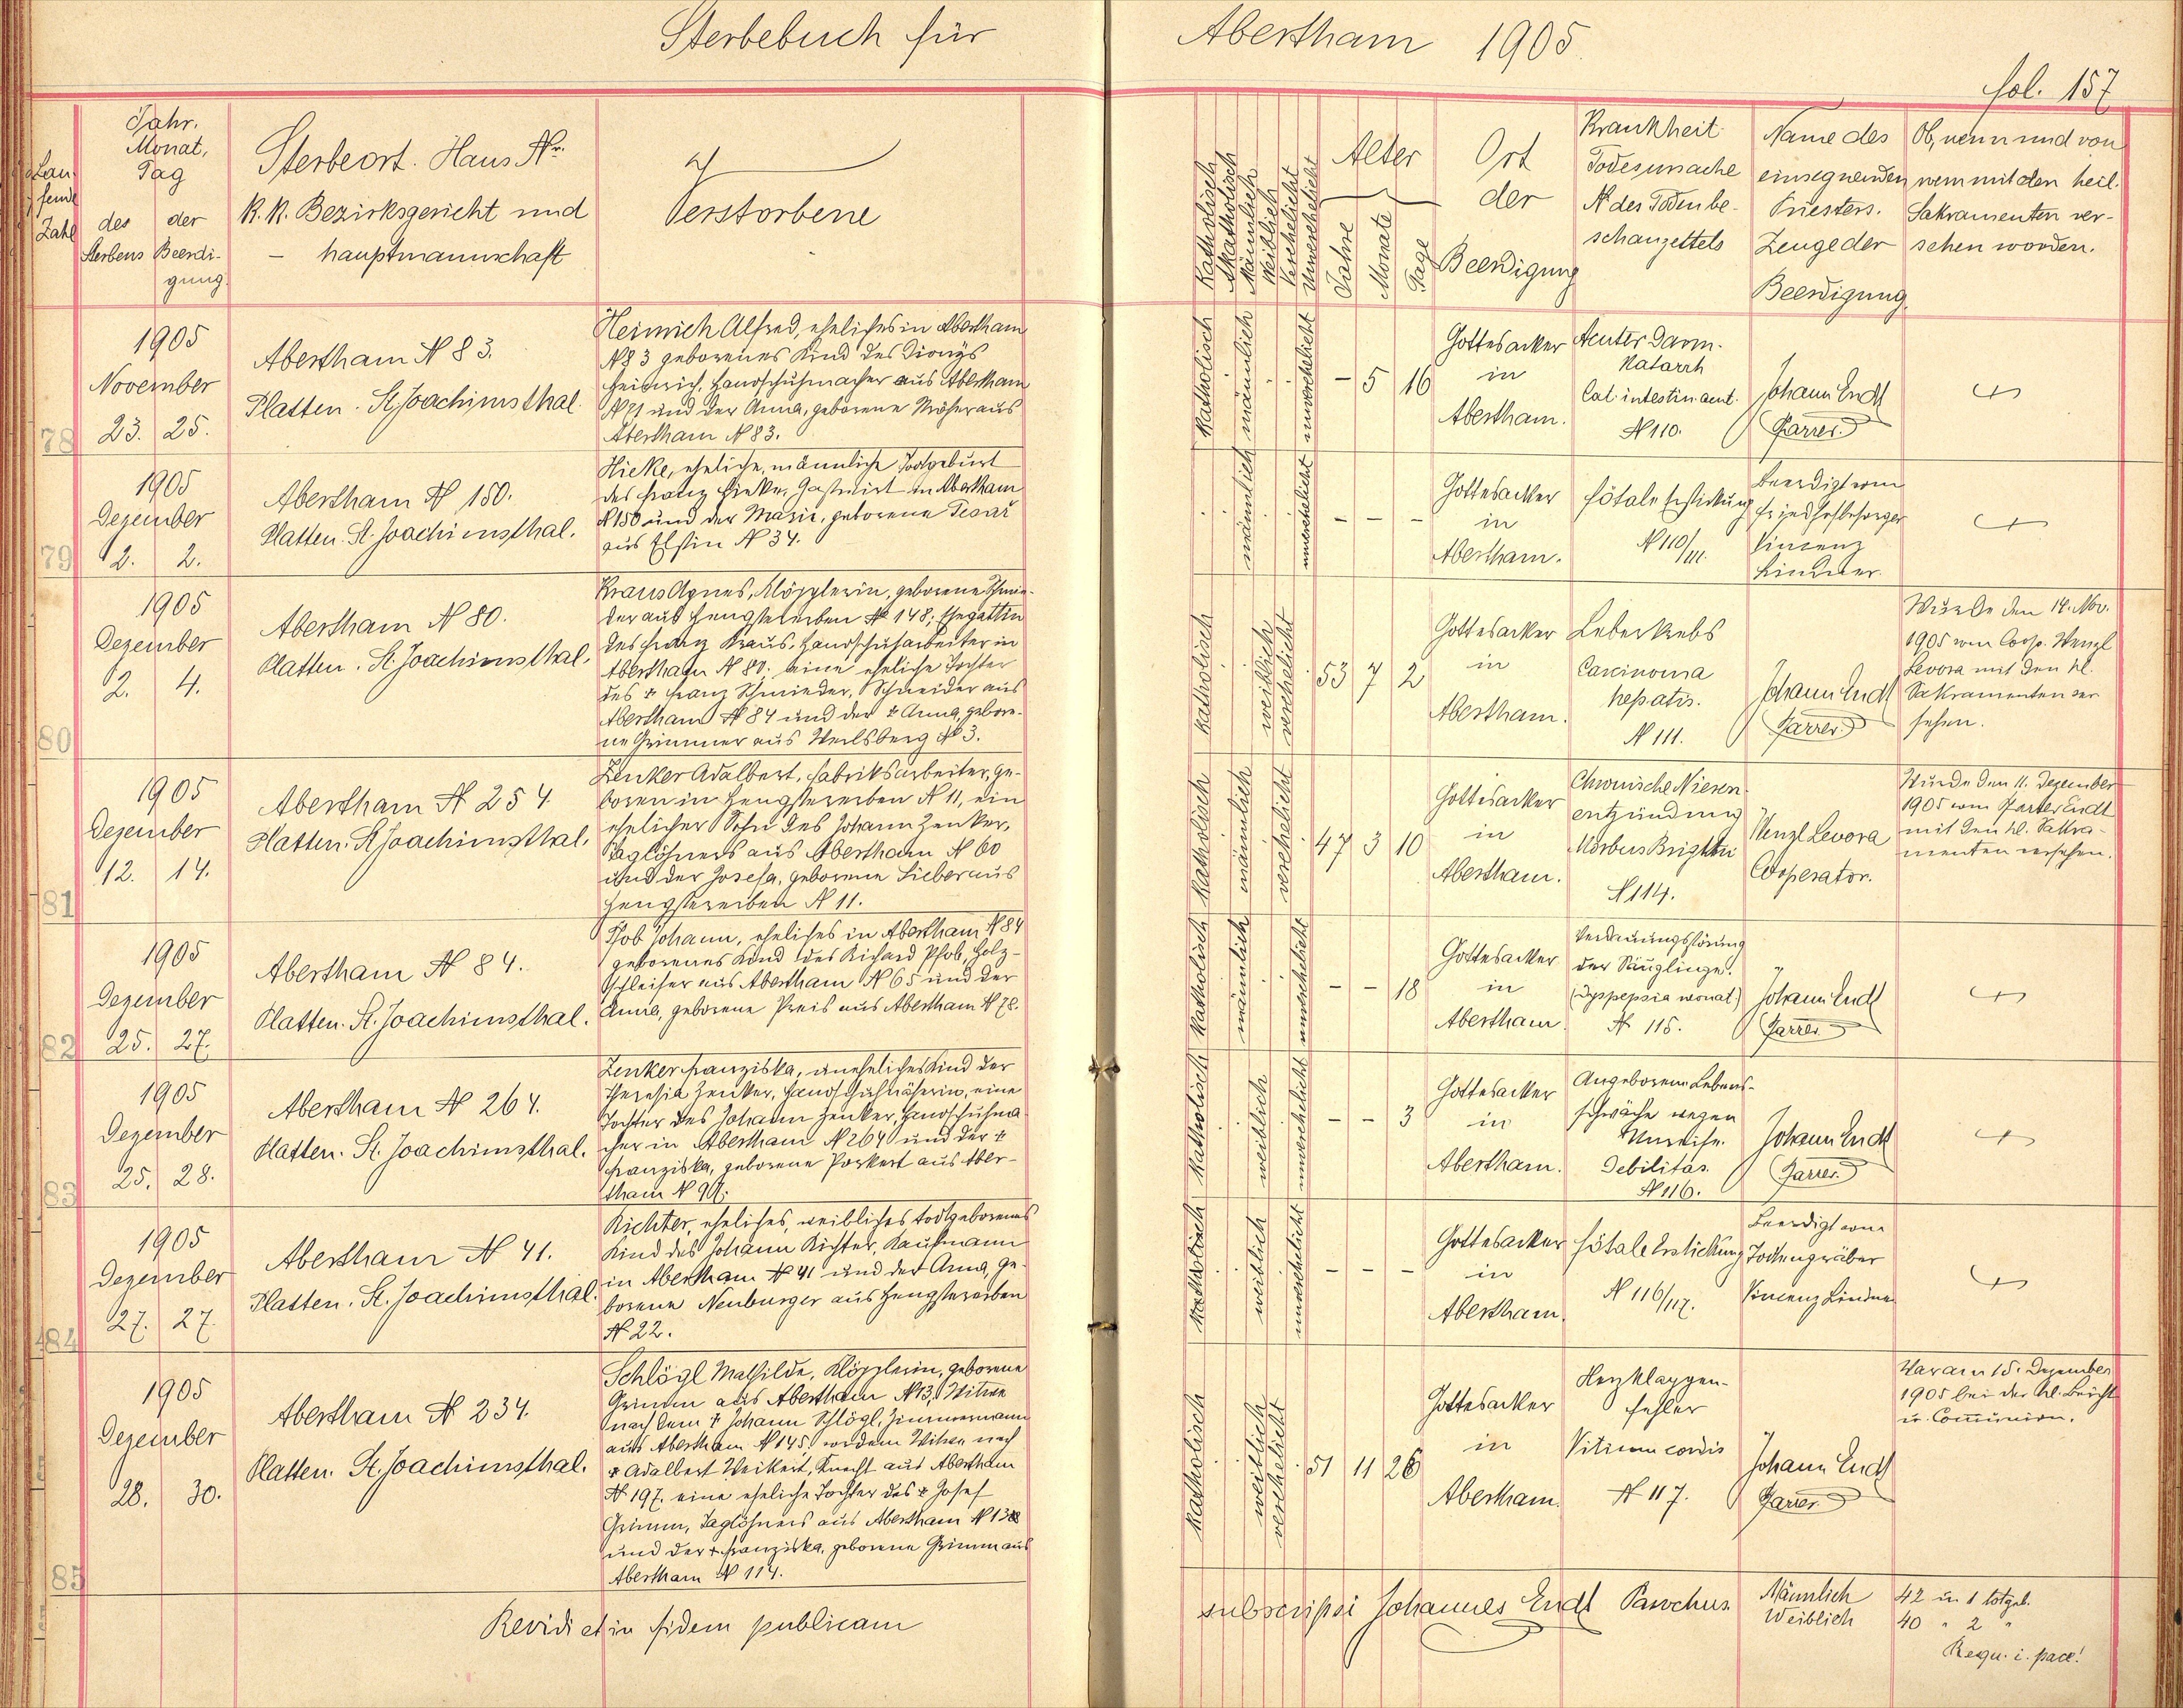 Sterbebuch für Abertham 1905.
fol. 157
Laufende Zahl
Jahr.
Monat,
Tag
des der
Sterbens Beerdi-
gung.
Sterbeort. Haus Nr.
K. K. Bezirksgericht und
- hauptmannschaft
Verstorbene
Katholisch
Akatholisch
Männlich
Weiblich
Verehelicht
Unverehelicht
Alter
Jahre
Monate
Tage
Ort
der
Beerdigung
Krankheit
Todesursache
No des Todenbe-
schauzettels
Name des
einsegnenden
Priesters.
Zeuge der
Beerdigung.
Ob, wenn und von
wem mit den heil.
Sakramenten ver-
sehen worden.
78
1905
November
23. 25.
Abertham N 83.
Platten. St. Joachimsthal.
Heinrich Alfred, eheliches in Abertham
N 83 geborenes Kind des Dionys
Heinrich, Handschuhmacher aus Abertham
N 71 und der Anna, geborene aus
Abertham N 83.
katholisch
männlich
unverehelicht
- 5 16
Gottesacker
in
Abertham.
Acuter Darm-
Katarrh
Cat. intestin. acut.
N 110.
Johann Endt
Pfarrer.
79
1905
Dezember
2. 2.
Abertham N 150.
Platten. St. Joachimsthal.
Hieke, eheliche, männliche Todtgeburt
des Franz Hieke, Gastwirt in Abertham
N 150 und der Marie, geborene Tesař
aus N 34.
männlich
unverehelicht
- - -
Gottesacker
in
Abertham.
Fötale Erstickung
N 110/111.
Beerdigt vom
Friedhofbesorger
Vincenz
Lindner.
80
1905
Dezember
2. 4.
Abertham N 80.
Platten. St. Joachimsthal.
Kraus Agnes, Klöpplerin, geborene Schmie-
der aus Hengstererben N 148; Ehegattin
des Franz Kraus, Handschuharbeiter in
Abertham N 80; eine eheliche Tochter
des + Franz Schmieder, Schneider aus
Abertham N 84 und der + Anna, gebore-
ne Grimmer aus N 3.
katholisch
weiblich
verehelicht
53 7 2
Gottesacker
in
Abertham.
Leberkrebs
Carcinoma
hepatis.
N 111.
Johann Endt
Pfarrer.
Wurde den 14. Nov.
1905 vom Coop. Wenzl
Levora mit den hl.
Sakramenten ver
sehen.
81
1905
Dezember
12. 14.
Abertham N 254.
Platten. St. Joachimsthal.
Zenker Adalbert, Fabriksarbeiter, ge-
boren in Hengstererben N 11, ein
ehelicher Sohn des Johann Zenker,
Taglöhners aus Abertham N 60
und der Josefa, geborene Lieber aus
Hengstererben N 11.
katholisch
männlich
verehelicht
47 3 10
Gottesacker
in
Abertham.
Chronische Nieren
entzündung
Morbus Brightii
N 114.
Wenzl Levora
Cooperator.
Wurde den 11. Dezember
1905 vom Pfarrer Endt
mit den hl. Sakra-
menten versehen.
82
1905
Dezember
25. 27.
Abertham N 84.
Platten. St. Joachimsthal.
Pfob Johann, eheliches in Abertham N 84
geborenes Kind des Richard Pfob, Holz-
schleifer aus Abertham N 65 und der
Anna, geborene Preis aus Abertham N 78.
katholisch
männlich
unverehelicht
- - 18
Gottesacker
in
Abertham.
Verdauungsstörung
der Säuglinge.
(Dyspepsia neonat.)
N 115.
Johann Endt
Pfarrer.
83
1905
Dezember
25. 28.
Abertham N 264.
Platten. St. Joachimsthal.
Zenker Franziska, uneheliches Kind der
Theresia Zenker, Handschuhnäherin, eine
Tochter des Johann Zenker, Handschuhma
cher in Abertham N 264 und der +
Franziska, geborene Porkert aus Aber-
tham N
katholisch
weiblich
unverehelicht
- - 3
Gottesacker
in
Abertham.
Angeborene Lebens-
schwäche wegen
Unreife.
Debilitas.
N 116.
Johann Endt
Pfarrer.
84
1905
Dezember
27. 27.
Abertham N 41.
Platten. St. Joachimsthal.
Richter, eheliches, weibliches todtgeborenes
Kind des Johann Richter, Kaufmann
in Abertham N 41 und der Anna, ge-
borene Neuburger aus Hengstererben
N 22.
katholisch
weiblich
unverehelicht
- - -
Gottesacker
in
Abertham.
Fötale Erstickung
N 116/117.
Beerdigt vom
Todtengräber
Vincenz Lindner
85
1905
Dezember
28. 30.
Abertham N 234.
Platten. St. Joachimsthal.
Schlögl Mathilde, Klöpplerin, geborene
Grimm aus Abertham N 13, Witwe
nach dem + Johann Schlögl, Zimmermann
aus Abertham N 145, vordem Witwe nach
+ Adalbert Weikert, Knecht aus Abertham
N 197. eine eheliche Tochter des + Josef
Grimm, Taglöhners aus Abertham N
und der + Franziska, geborene Grimm aus
Abertham N 114.
katholisch
weiblich
verehelicht
51 11 26
Gottesacker
in
Abertham.
Herzklappen-
fehler
Vitium cordis
N 117.
Johann Endt
Pfarrer.
War am 15. Dezember
1905 bei der hl. Beicht
u. Communion.
Revidi et in fidem publicam subscripsi Johannes Endt Parochus.
Männlich 42 u. 1 totgeb.
Weiblich 40 " 2 "
Requ. i. pace!